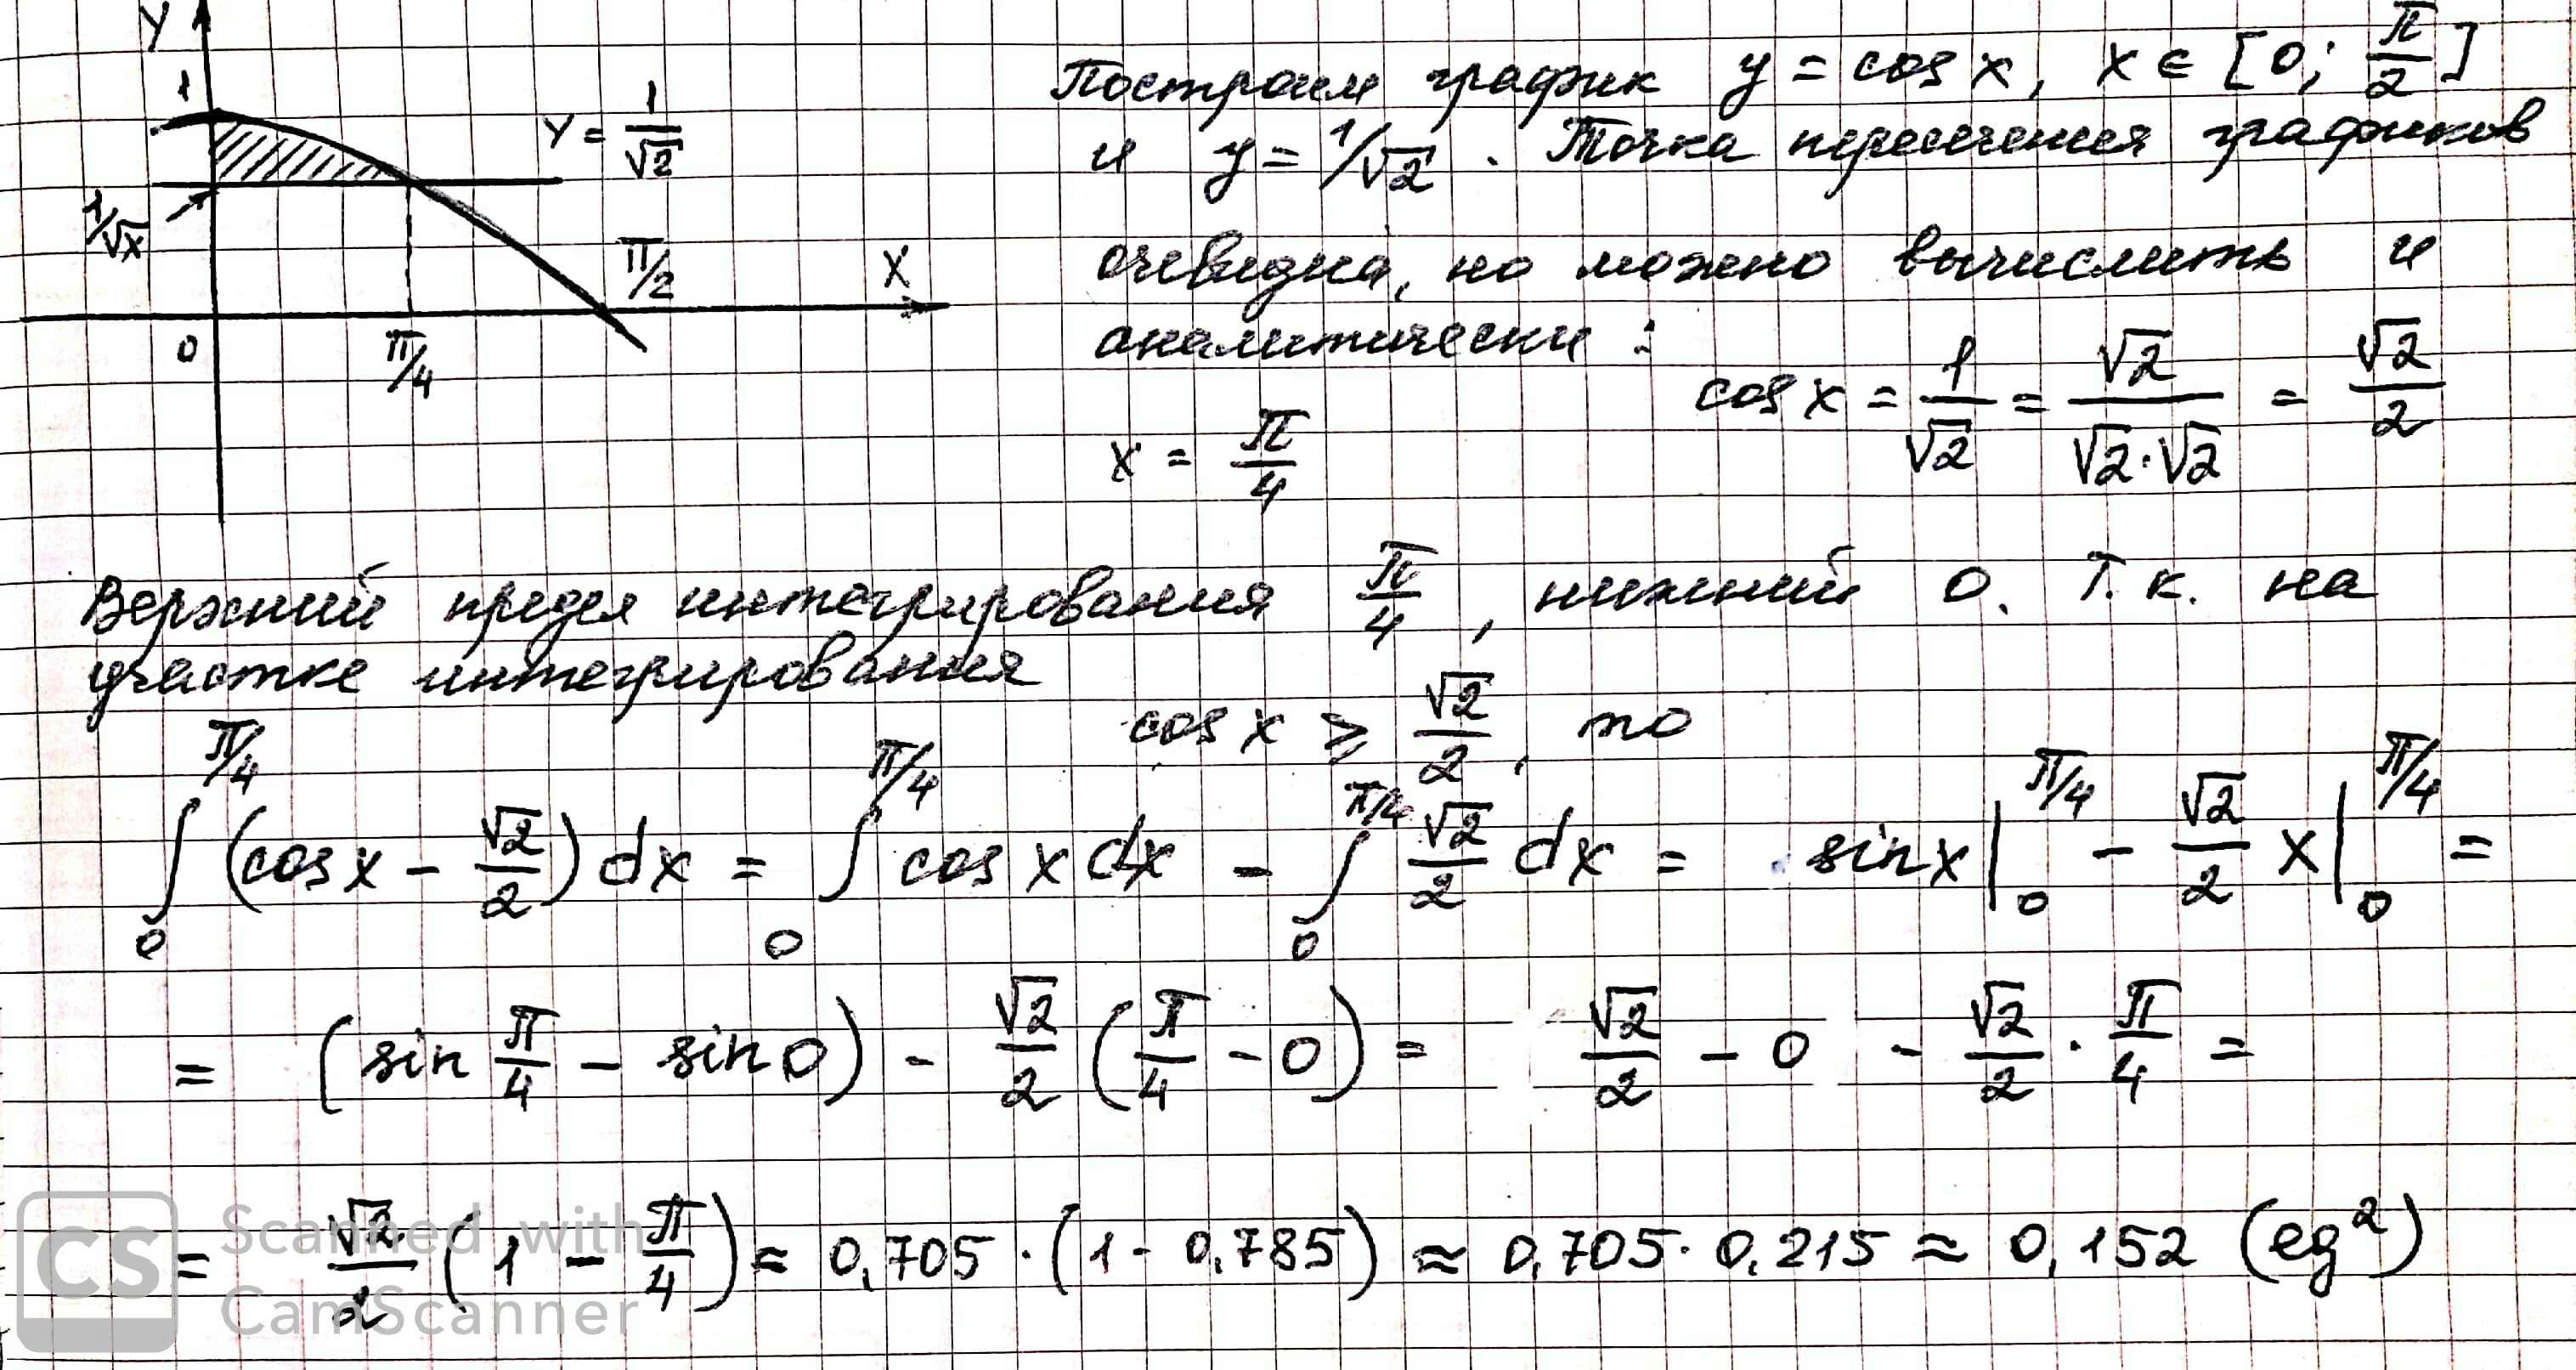 Y
1
Y = 1/√2
1/√x
π/2
X
0
π/4
Построим график y = cos x, x ∈ [0; π/2]
и y = 1/√2. Точка пересечения графиков
очевидна, но можно вычислить и
аналитически:
cos x = 1/√2 = √2/(√2·√2) = √2/2
x = π/4
Верхний предел интегрирования π/4, нижний 0. Т.к. на
участке интегрирования
cos x ⩾ √2/2, то
∫₀^(π/4) (cos x − √2/2) dx = ∫₀^(π/4) cos x dx − ∫₀^(π/4) √2/2 dx = sin x |₀^(π/4) − √2/2 x |₀^(π/4) =
= (sin π/4 − sin 0) − √2/2 (π/4 − 0) = √2/2 − 0 − √2/2 · π/4 =
= √2/2 (1 − π/4) ≈ 0,705 · (1 − 0,785) ≈ 0,705 · 0,215 ≈ 0,152 (ед²)
CS
Scanned with
CamScanner